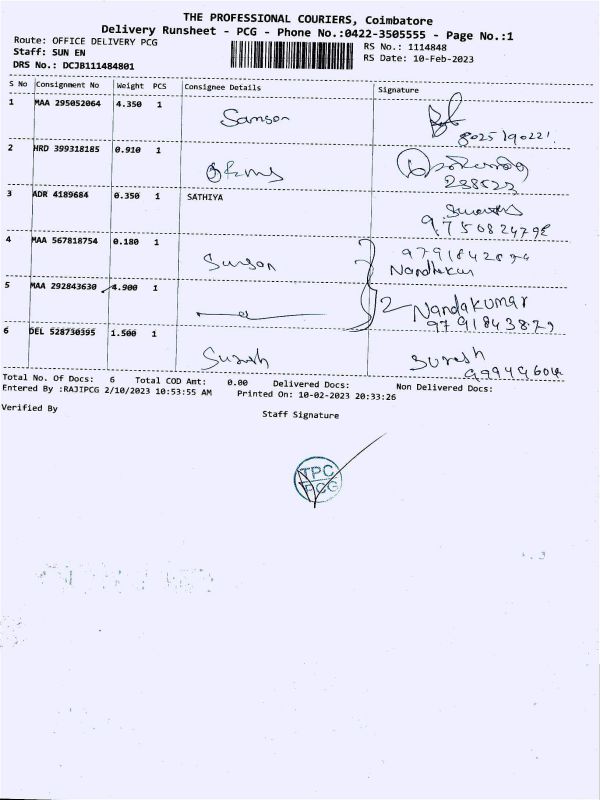 THE PROFESSIONAL COURIERS, Coimbatore
Delivery Runsheet - PCG - Phone No.:0422-3505555 - Page No.:1
Route: OFFICE DELIVERY PCG
RS No.: 1114848
Staff: SUN EN
RS Date: 10-Feb-2023
DRS No.: DCJB111484801
S No Consignment No Weight PCS Consignee Details Signature
1 MAA 295052064 4.350 1 Samson
2 HRD 399318185 0.910 1
238523
3 ADR 4189684 0.350 1 SATHIYA
9750824798
4 MAA 567818754 0.180 1
Nandhakumar
5 MAA 292843630 4.900 1 2 Nandakumar
9791843879
6 DEL 528730395 1.500 1 Suresh Suresh
Total No. Of Docs: 6 Total COD Amt: 0.00 Delivered Docs: Non Delivered Docs:
Entered By :RAJIPCG 2/10/2023 10:53:55 AM Printed On: 10-02-2023 20:33:26
Verified By Staff Signature
TPC
PCG